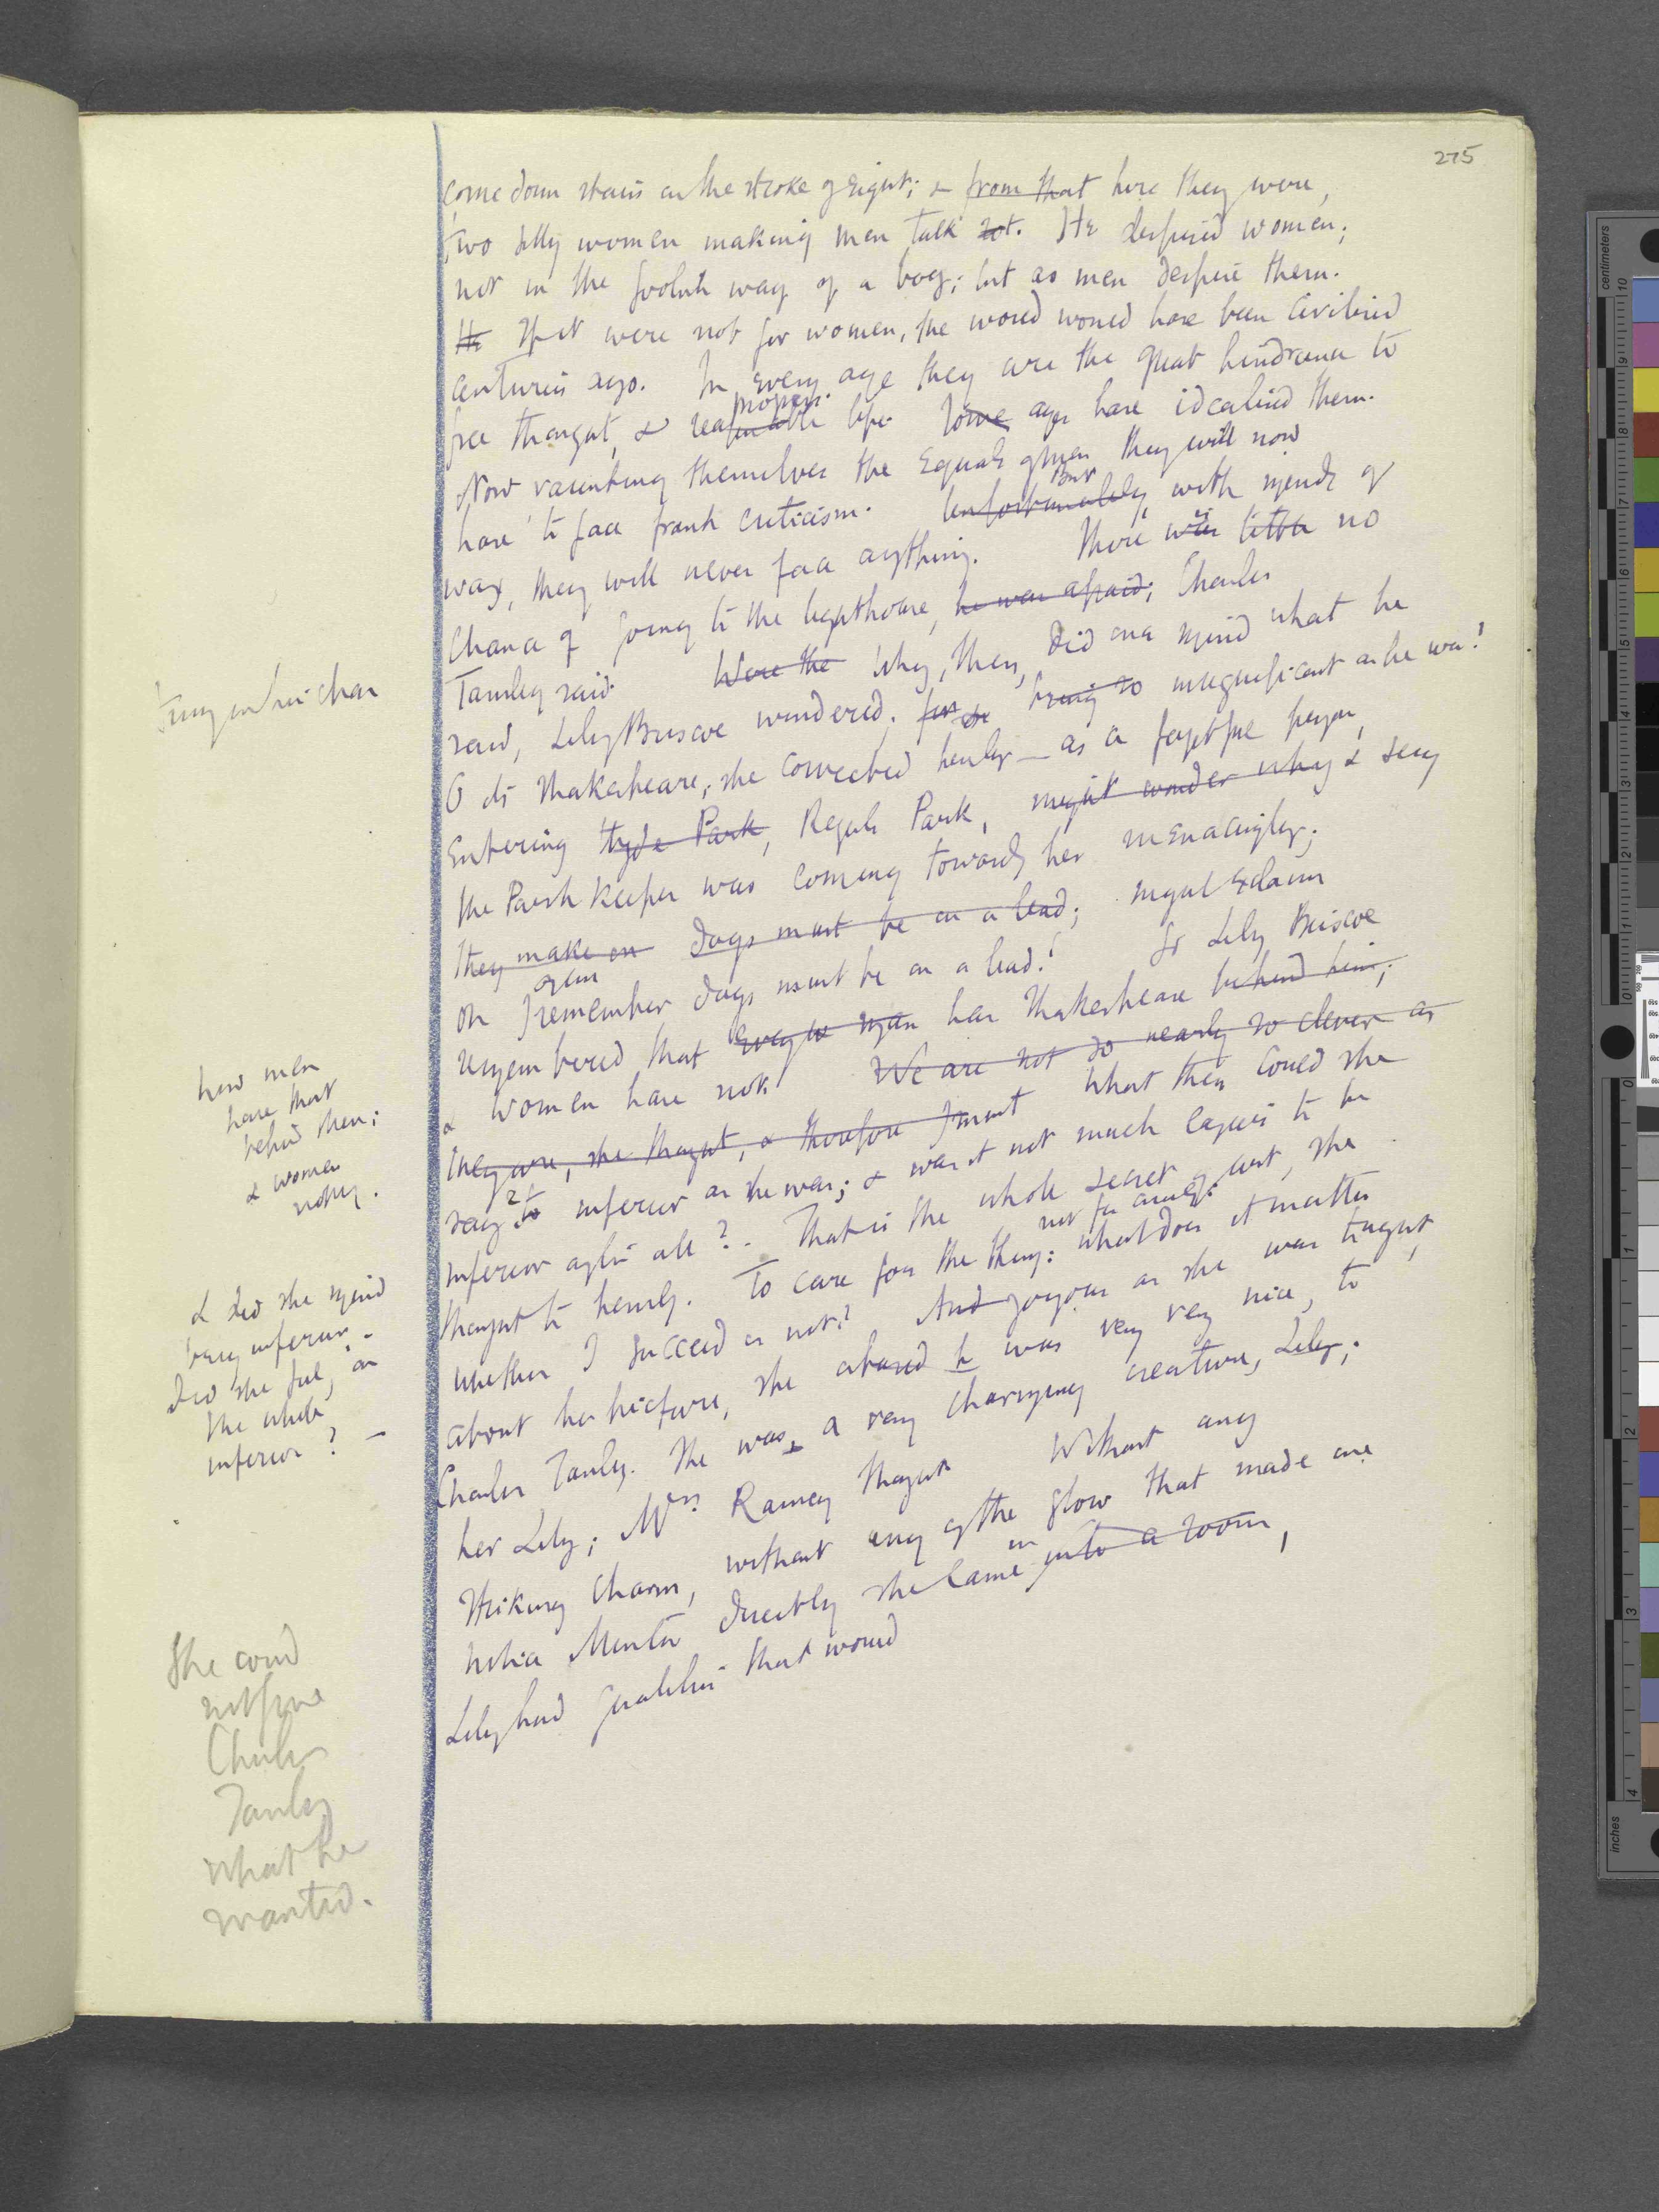 275
come down stairs on the stroke of eight; & from that here they were,
two silly women making men talk rot. He despised women;
not in the foolish way of a boy; but as men despise them.
He If it were not for women, the world would have been civilised
centuries ago. In every age they are the great hindrance to
free thought, & reasonable life. Some ages have idealised them.
progress.
Now vaunting themselves the equals of men they will now
have to face frank criticism. Unfortunately, with minds of
But
wax, they will never face anything. There was little no
is
chance of going to the lighthouse, he was afraid; Charles
Tansley said. Were the Why, then, did one mind what he
said, Lily Briscoe wondered. being so magnificent as he was!
O its Shakespeare, she corrected herself — as a forgetful person,
entering Hyde Park, Regents Park, might wonder why & seeing
the Park keeper was coming towards her menacingly;
they make on dogs must be on a lead; might exclaim
Oh I remember dogs must be on a lead! So Lily Briscoe
again
remembered that every man has Shakespeare behind him;
& women have not. We are not so nearly so clever as
they are, she thought, & therefore I must What then could she
say? to inferior as she was; & was it not much easier to be
inferior after all? That is the whole secret of art, she
thought to herself. To care for the thing: what does it matter
not for oneself:
whether I succeed or not? And joyous as she was
about her picture, she was very very nice, to
Charles Tansley. She was, a very charming creature, Lily;
her Lily; Mrs Ramsay thought Without any
striking charm, without any of the glow that made one
notice Minta directly she came into a room,
in
Lily had qualities that would
in his chair
how men
have that
behind them;
& women
nothing.
& did she mind
being inferior –
did she feel, on
the whole
inferior? –
She could
not give
Charles
Tansley
what he
wanted.